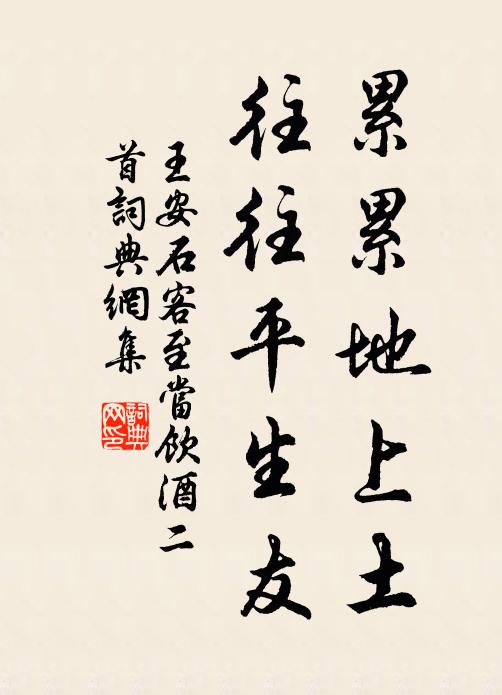 累累地上土
往往平生友
王安石客至當飲酒二
首詞典網集
詞典
网印